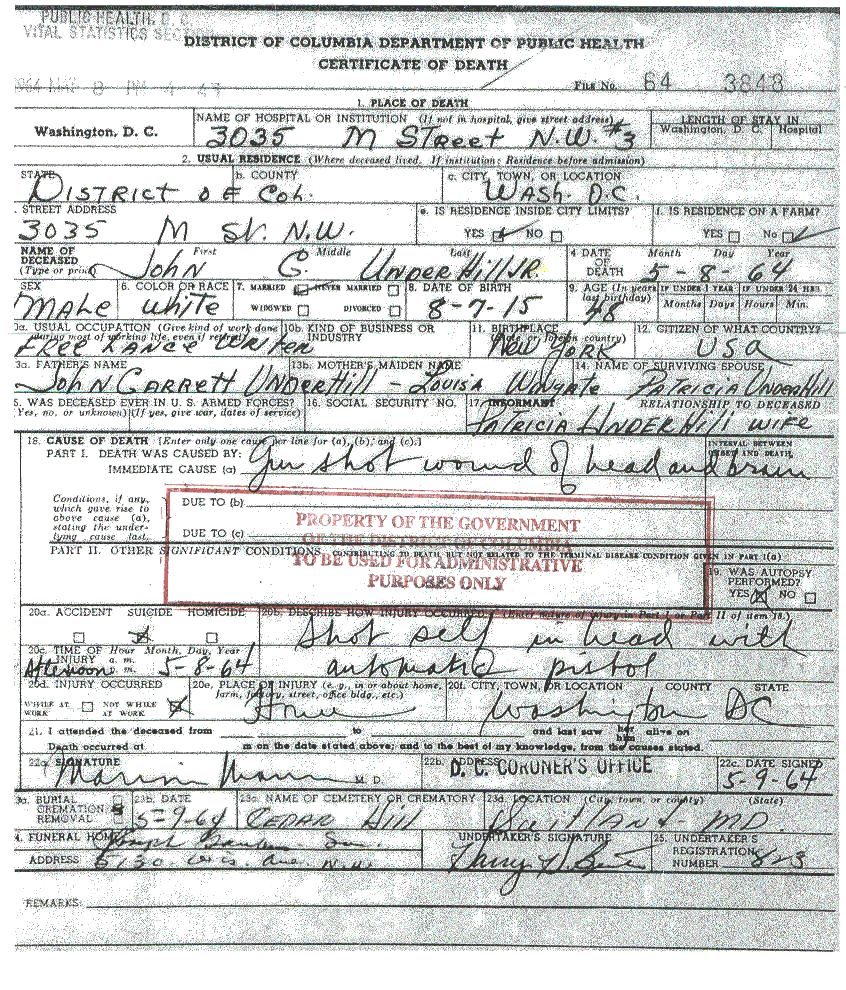 PUBLIC HEALTH, D. C.
VITAL STATISTICS SEC
DISTRICT OF COLUMBIA DEPARTMENT OF PUBLIC HEALTH
CERTIFICATE OF DEATH
1964 MAY 8 PM 4 47
FILE No. 64 3848
1. PLACE OF DEATH
Washington, D. C.
NAME OF HOSPITAL OR INSTITUTION (If not in hospital, give street address)
3035 M STreet N.W. #3
LENGTH OF STAY IN
Washington, D. C. Hospital
2. USUAL RESIDENCE (Where deceased lived. If institution: Residence before admission)
STATE
District of Col.
b. COUNTY
c. CITY, TOWN, OR LOCATION
Wash. D.C.
STREET ADDRESS
3035 M St. N.W.
e. IS RESIDENCE INSIDE CITY LIMITS?
YES NO
f. IS RESIDENCE ON A FARM?
YES No
NAME OF DECEASED
(Type or print)
First Middle Last
John G. UnderHill JR.
4 DATE OF DEATH
Month Day Year
5-8-64
SEX
Male
6. COLOR OR RACE
White
7. MARRIED NEVER MARRIED
WIDOWED DIVORCED
8. DATE OF BIRTH
8-7-15
9. AGE (In years last birthday)
48
IF UNDER 1 YEAR
Months Days
IF UNDER 24 HRS.
Hours Min.
0a. USUAL OCCUPATION (Give kind of work done during most of working life, even if retired)
Free Lance Writer
10b. KIND OF BUSINESS OR INDUSTRY
11. BIRTHPLACE (State or foreign country)
New York
12. CITIZEN OF WHAT COUNTRY?
USA
3a. FATHER'S NAME
John Garrett UnderHill
13b. MOTHER'S MAIDEN NAME
Louisa Wingate
14. NAME OF SURVIVING SPOUSE
Patricia UnderHill
5. WAS DECEASED EVER IN U. S. ARMED FORCES?
Yes, no, or unknown) (If yes, give war, dates of service)
16. SOCIAL SECURITY NO.
17. INFORMANT RELATIONSHIP TO DECEASED
Patricia UnderHill wife
18. CAUSE OF DEATH [Enter only one cause per line for (a), (b), and (c).]
PART I. DEATH WAS CAUSED BY:
IMMEDIATE CAUSE (a)
Gun shot wound of head and brain
INTERVAL BETWEEN
ONSET AND DEATH
Conditions, if any, which gave rise to above cause (a), stating the underlying cause last.
DUE TO (b)
DUE TO (c)
PROPERTY OF THE GOVERNMENT
OF THE DISTRICT OF COLUMBIA
TO BE USED FOR ADMINISTRATIVE
PURPOSES ONLY
PART II. OTHER SIGNIFICANT CONDITIONS CONTRIBUTING TO DEATH, BUT NOT RELATED TO THE TERMINAL DISEASE CONDITION GIVEN IN PART I(a)
19. WAS AUTOPSY PERFORMED?
YES NO
20a. ACCIDENT SUICIDE HOMICIDE
20b. DESCRIBE HOW INJURY OCCURRED. (Enter nature of injury in Part I or Part II of item 18.)
Shot self in head with
automatic pistol
20c. TIME OF INJURY Hour Month, Day, Year
a. m.
p. m.
Afternoon 5-8-64
20d. INJURY OCCURRED
WHILE AT WORK NOT WHILE AT WORK
20e. PLACE OF INJURY (e. g., in or about home, farm, factory, street, office bldg., etc.)
Home
20f. CITY, TOWN, OR LOCATION COUNTY STATE
Washington DC
21. I attended the deceased from to and last saw her him alive on
Death occurred at m on the date stated above; and to the best of my knowledge, from the causes stated.
22a. SIGNATURE
M. D.
22b. ADDRESS
D. C. CORONER'S OFFICE
22c. DATE SIGNED
5-9-64
3a. BURIAL
CREMATION
REMOVAL
23b. DATE
5-9-64
23c. NAME OF CEMETERY OR CREMATORY
Cedar Hill
23d. LOCATION (City, town, or county) (State)
Suitland MD.
4. FUNERAL HOME
Joseph Sons
ADDRESS 5130 Wis. Ave. N.W.
UNDERTAKER'S SIGNATURE
25. UNDERTAKER'S
REGISTRATION
NUMBER 823
REMARKS: